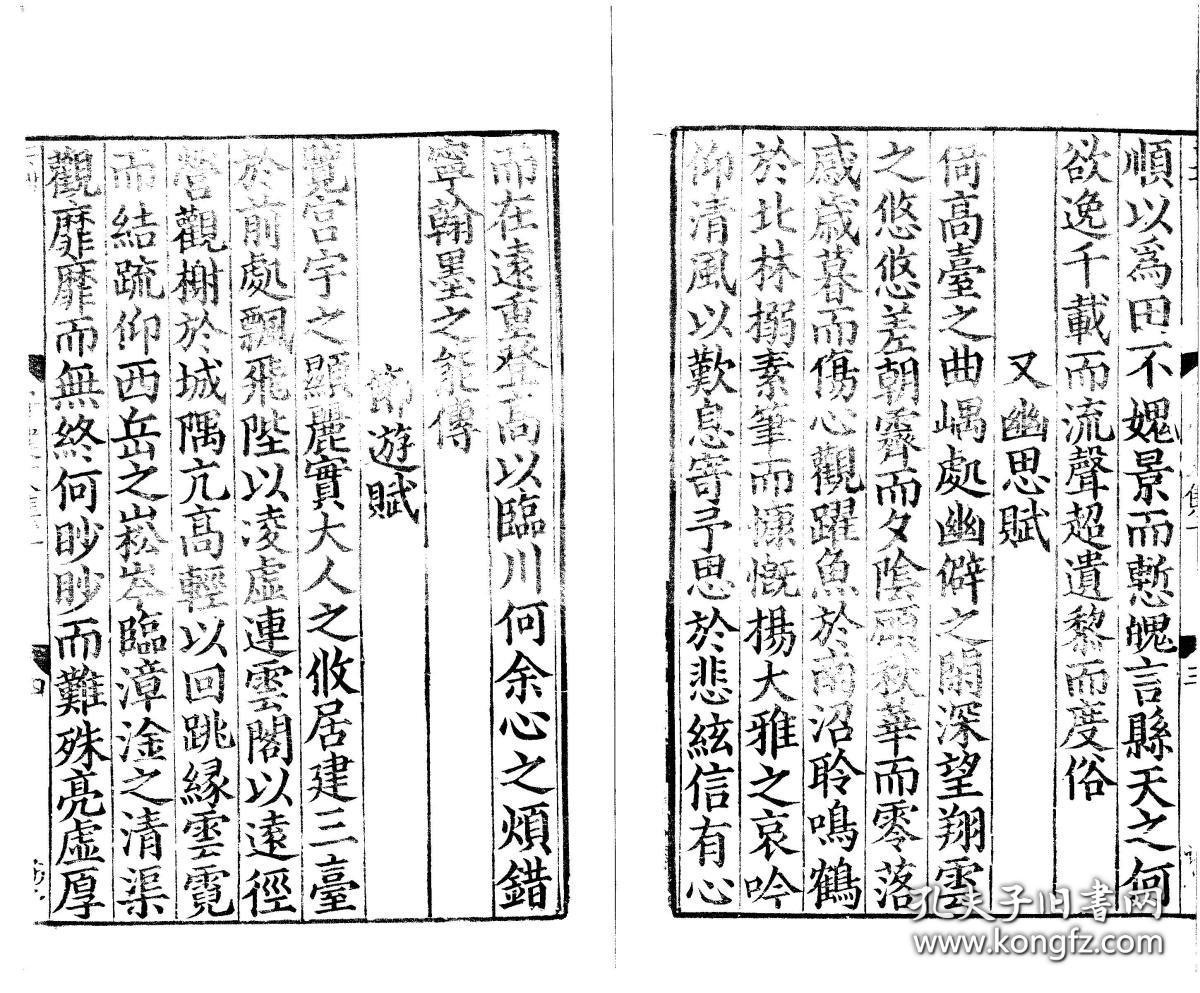 順以爲田不媿景而慙魄言縣天之何
欲逸千載而流聲超遺黎而度俗
又幽思賦
倚高臺之曲嵎處幽僻之閑深望翔雲
之悠悠羌朝霽而夕陰顧秋華而零落
感歲暮而傷心觀躍魚於南沼聆鳴鶴
於北林搦素筆而慷慨揚大雅之哀吟
仰清風以歎息寄予思於悲絃信有心
而在遠重登高以臨川何余心之煩錯
寧翰墨之能傳
節遊賦
覽宮宇之顯麗實大人之攸居建三臺
於前處飄飛陛以凌虛連雲閣以遠徑
營觀榭於城隅亢高輕以回眺緣雲霓
而結疏仰西岳之崧岑臨漳淦之清渠
觀靡靡而無終何眇眇而難殊亮虛厚
四
孔夫子旧书网
www.kongfz.com